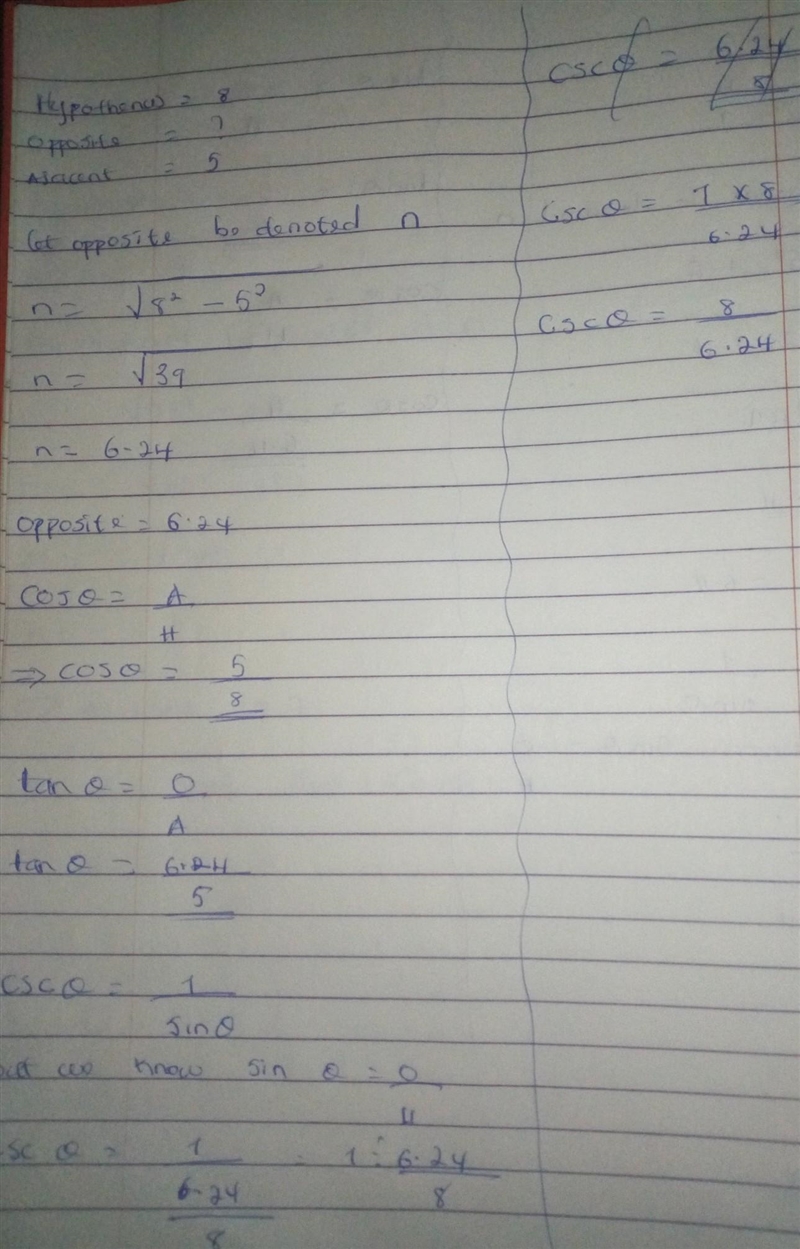 Hypothenus = 8
Opposite = ?
Adjacent = 5
Let opposite be denoted n
n = √8² - 5²
n = √39
n = 6.24
Opposite = 6.24
Cos θ = A/H
⇒ Cos θ = 5/8
tan θ = O/A
tan θ = 6.24/5
CSC θ = 1/Sin θ
but we know Sin θ = O/H
SC θ = 1/(6.24/8) = 1 ÷ 6.24/8
CSC θ = 6.24/8
CSC θ = 1 x 8/6.24
CSC θ = 8/6.24